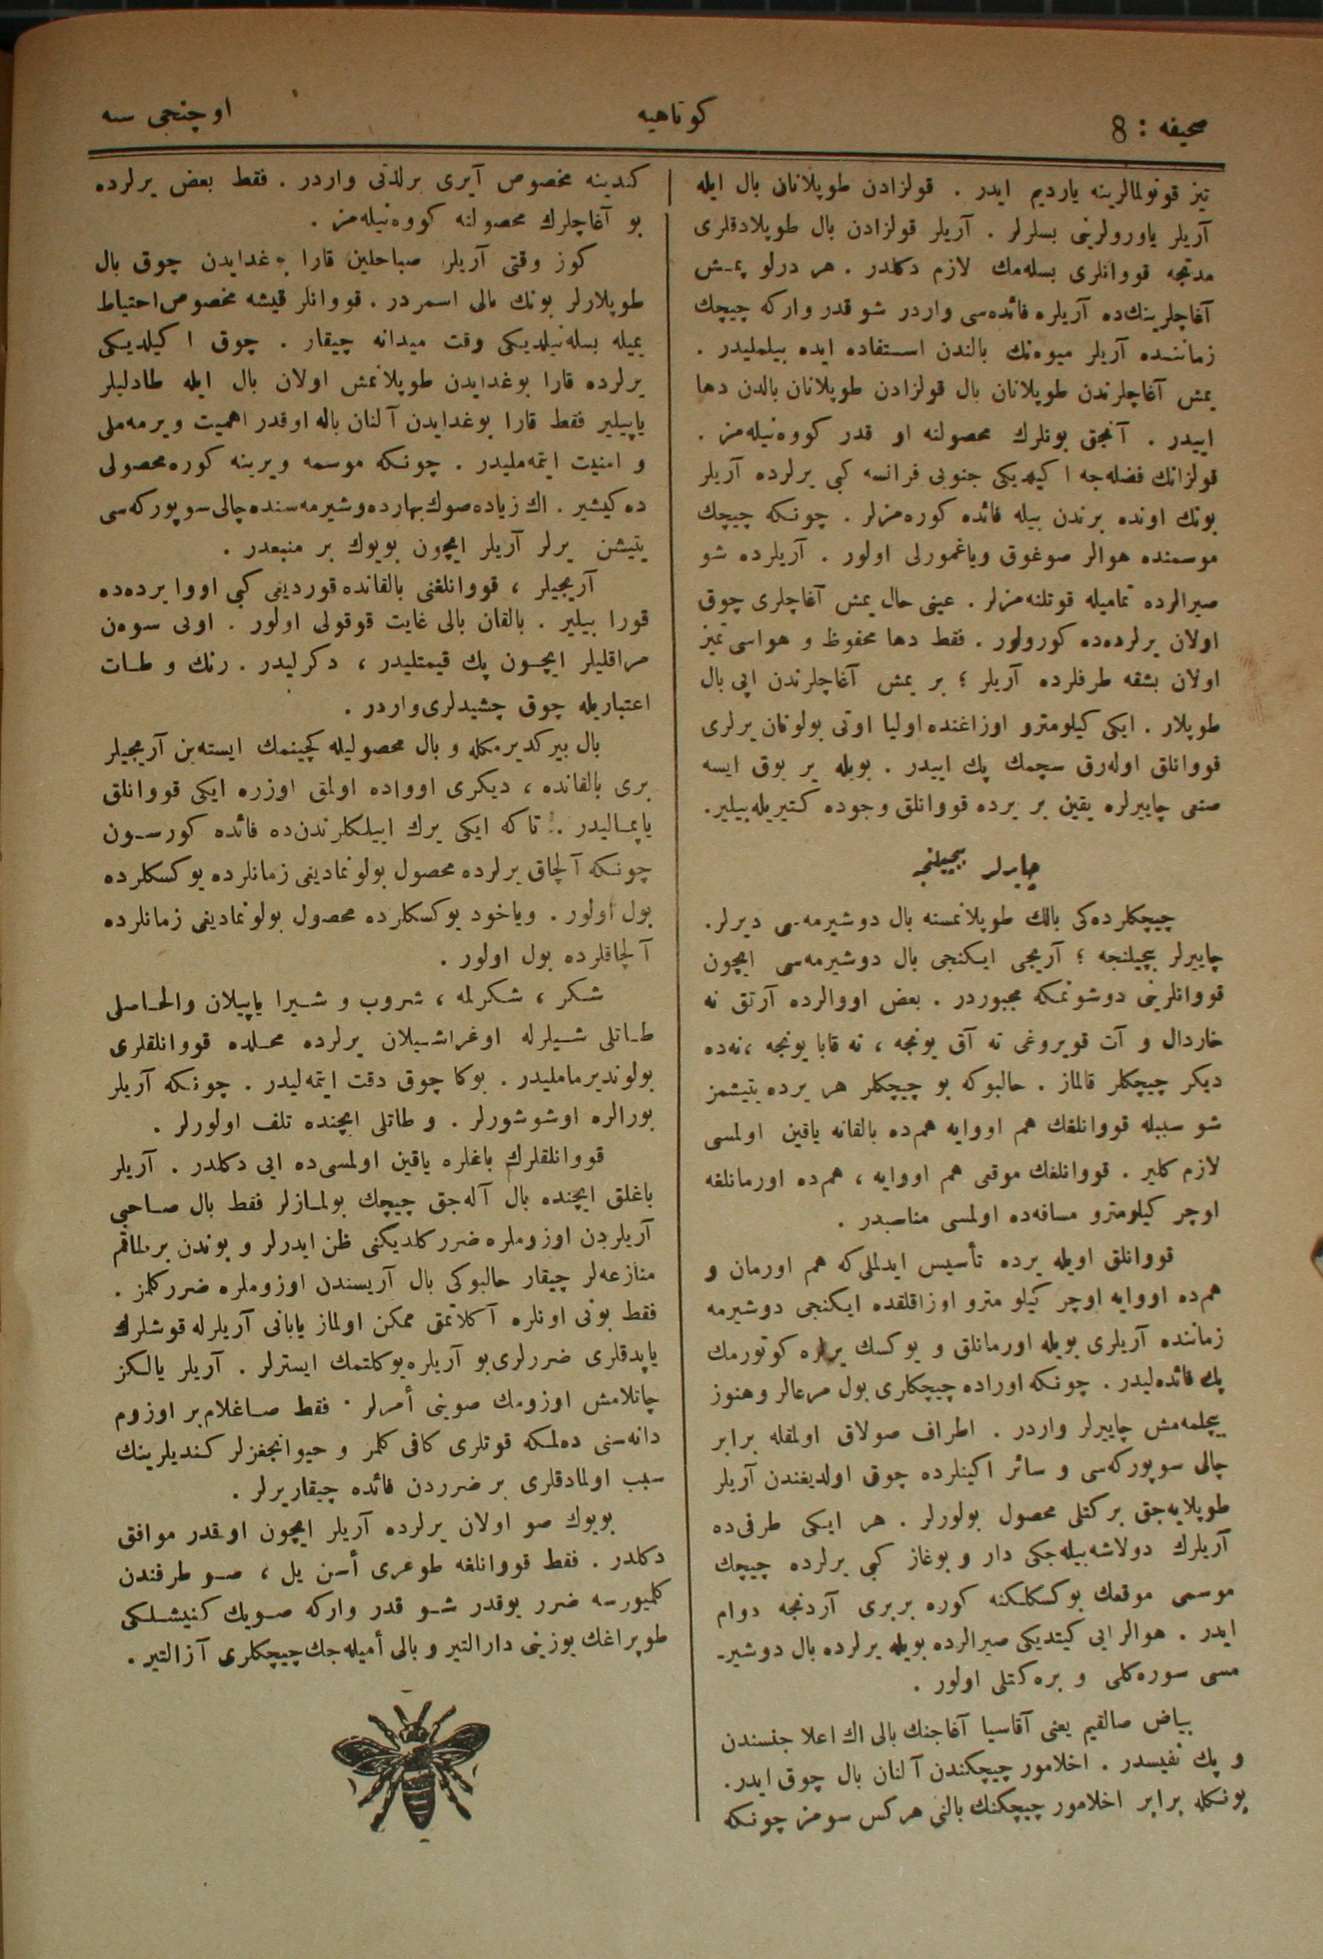 صحیفه : 8
كوتاهیه
اوچنجی سنه
تیز قونولمالرینه یاردیم ایدر . قولزادن طوپلانان بال ایله
آریلر یاورولرینی بسلرلر . آریلر قولزادن بال طوپلادقلری
مدتجه قووانلری بسله‌مك لازم دكلدر . هر درلو یمش
آغاچلرینك‌ده آریلره فائده‌سی واردر شو قدر واركه چیچك
زماننده آریلر میوه‌نك بالندن استفاده ایده بیلملیدر .
یمش آغاچلرندن طوپلانان بال قولزادن طوپلانان بالدن دها
اییدر . آنجق بونلرك محصولنه او قدر كووه‌نیله‌مز .
قولزانك فضله‌جه ا كیلدیكی جنوبی فرانسه كبی یرلرده آریلر
بونك اونده برندن بیله فائده كوره‌مزلر . چونكه چیچك
موسمنده هوالر صوغوق ویاغمورلی اولور . آریلرده شو
صیرالرده تمامیله قوتلنه‌مزلر . عینی حال یمش آغاچلری چوق
اولان یرلرده‌ده كورولور . فقط دها محفوظ و هواسی تمیز
اولان بشقه طرفلرده آریلر ؛ بر یمش آغاچلرندن ایی بال
طوپلار . ایكی كیلومترو اوزاغنده اولیا اوتی بولونان یرلری
قووانلق اوله‌رق سچمك پك اییدر . بویله یر یوق ایسه
صنعی چایرلره یقین بر یرده قووانلق وجوده كتیریله‌بیلیر.
چایرلر بیچیلنجه
چیچكلرده‌كی بالك طوپلانمسنه بال دوشیرمه‌سی دیرلر.
چایرلر بیچیلنجه ؛ آریجی ایكنجی بال دوشیرمه‌سی ایچون
قووانلرینی دوشونمكه مجبوردر . بعض اووالرده آرتق نه
خاردال و آت قویروغی نه آق یونجه ، نه قابا یونجه ،نه‌ده
دیكر چیچكلر قالماز . حالبوكه بو چیچكلر هر یرده یتیشمز
شو سببله قووانلغك هم اووایه هم‌ده بالقانه یاقین اولمسی
لازم كلیر . قووانلغك موقعی هم اووایه ، هم‌ده اورمانلغه
اوچر كیلومترو مسافه‌ده اولمسی مناسبدر .
قووانلق اویله یرده تأسیس ایدلملی‌كه هم اورمان و
هم‌ده اووایه اوچر كیلو مترو اوزاقلقده ایكنجی دوشیرمه
زماننده آریلری بویله اورمانلق و یوكسك یرلره كوتورمك
پك فائده‌لیدر . چونكه اوراده چیچكلری بول مرعالر وهنوز
بیچلمه‌مش چایرلر واردر . اطراف صولاق اولمقله برابر
چالی سوپوركه‌سی و سائر اكینلرده چوق اولدیغندن آریلر
طوپلایه‌جق بركتلی محصول بولورلر . هر ایكی طرفی‌ده
آریلرك دولاشه‌بیله‌جكی دار و بوغاز كبی یرلرده چیچك
موسمی موقعك یوكسكلكنه كوره بربری آردنجه دوام
ایدر . هوالر ایی كیتدیكی صیرالرده بویله یرلرده بال دوشیر-
مسی سوره‌كلی و بره‌كتلی اولور .
بیاض صالقیم یعنی آقاسیا آغاجنك بالی اك اعلا جنسندن
و پك نفیسدر . اخلامور چیچكندن آلنان بال چوق ایدر.
بونكله برابر اخلامور چیچكنك بالنی هركس سومز چونكه
كندینه مخصوص آیری برلذتی واردر . فقط بعض یرلرده
بو آغاچلرك محصولنه كووه‌نیله‌مز .
كوز وقتی آریلر صباحلین قارا بوغدایدن چوق بال
طوپلارلر بونك بالی اسمردر . قووانلر قیشه مخصوص احتیاط
یمیله بسله‌نیلدیكی وقت میدانه چیقار . چوق ا كیلدیكی
یرلرده قارا بوغدایدن طوپلانمش اولان بال ایله طادلیلر
یاپیلیر فقط قارا بوغدایدن آلنان باله اوقدر اهمیت ویرمه‌ملی
و امنیت ایتمه‌ملیدر . چونكه موسمه ویرینه كوره محصولی
ده‌كیشیر . اك زیاده صوك‌بهارده دوشیرمه‌سنده چالی سوپوركه‌سی
یتیشن یرلر آریلر ایچون بویوك بر منبعدر .
آریجیلر ، قووانلغنی بالقانده قوردیغی كبی اووا یرده‌ده
قورا بیلیر . بالقان بالی غایت قوقولی اولور . اونی سوه‌ن
مراقلیلر ایچون پك قیمتلیدر ، دكرلیدر . رنك و طات
اعتباریله چوق چشیدلری واردر .
بال بیركدیرمكله و بال محصولیله كچینمك ایسته‌ین آریجیلر
بری بالقانده ، دیكری اوواده اولمق اوزره ایكی قووانلق
یاپمالیدر . تاكه ایكی یرك اییلكلرندن‌ده فائده كورسون
چونكه آلچاق یرلرده محصول بولونمادیغی زمانلرده یوكسكلرده
بول اولور . ویاخود یوكسكلرده محصول بولونمادیغی زمانلرده
آلچاقلرده بول اولور .
شكر ، شكرلمه ، شروب و شیرا یاپیلان والحاصلی
طاتلی شیلرله اوغراشیلان یرلرده محلده قووانلقلری
بولوندیرمامالیدر. بوكا چوق دقت ایتمه‌لیدر . چونكه آریلر
بورالره اوشوشورلر . و طاتلی ایچنده تلف اولورلر .
قووانلقلرك باغلره یاقین اولمسی‌ده ایی دكلدر . آریلر
باغلق ایچنده بال آله‌جق چیچك بولمازلر فقط بال صاحبی
آریلردن اوزوملره ضرر كلدیكنی ظن ایدرلر و بوندن برطاقم
منازعه‌لر چیقار حالبوكی بال آریسندن اوزوملره ضرر كلمز .
فقط بونی اونلره آكلاتمق ممكن اولماز یابانی آریلرله قوشلرك
یاپدقلری ضررلری‌بو آریلره یوكلتمك ایسترلر . آریلر یالكز
چاتلامش اوزومك صوینی أمرلر . فقط صاغلام بر اوزوم
دانه‌سنی ده‌لمكه قوتلری كافی كلمز و حیوانجغزلر كندیلرینك
سبب اولمادقلری بر ضرردن فائده چیقاریرلر .
بویوك صو اولان یرلرده آریلر ایچون اوقدر موافق
دكلدر . فقط قووانلغه طوغری أسن یل ، صو طرفندن
كلمیورسه ضرر یوقدر شو قدر واركه صویك كنیشلكی
طوپراغك یوزینی دارالتیر و بالی أمیله‌جك چیچكلری آزالتیر .